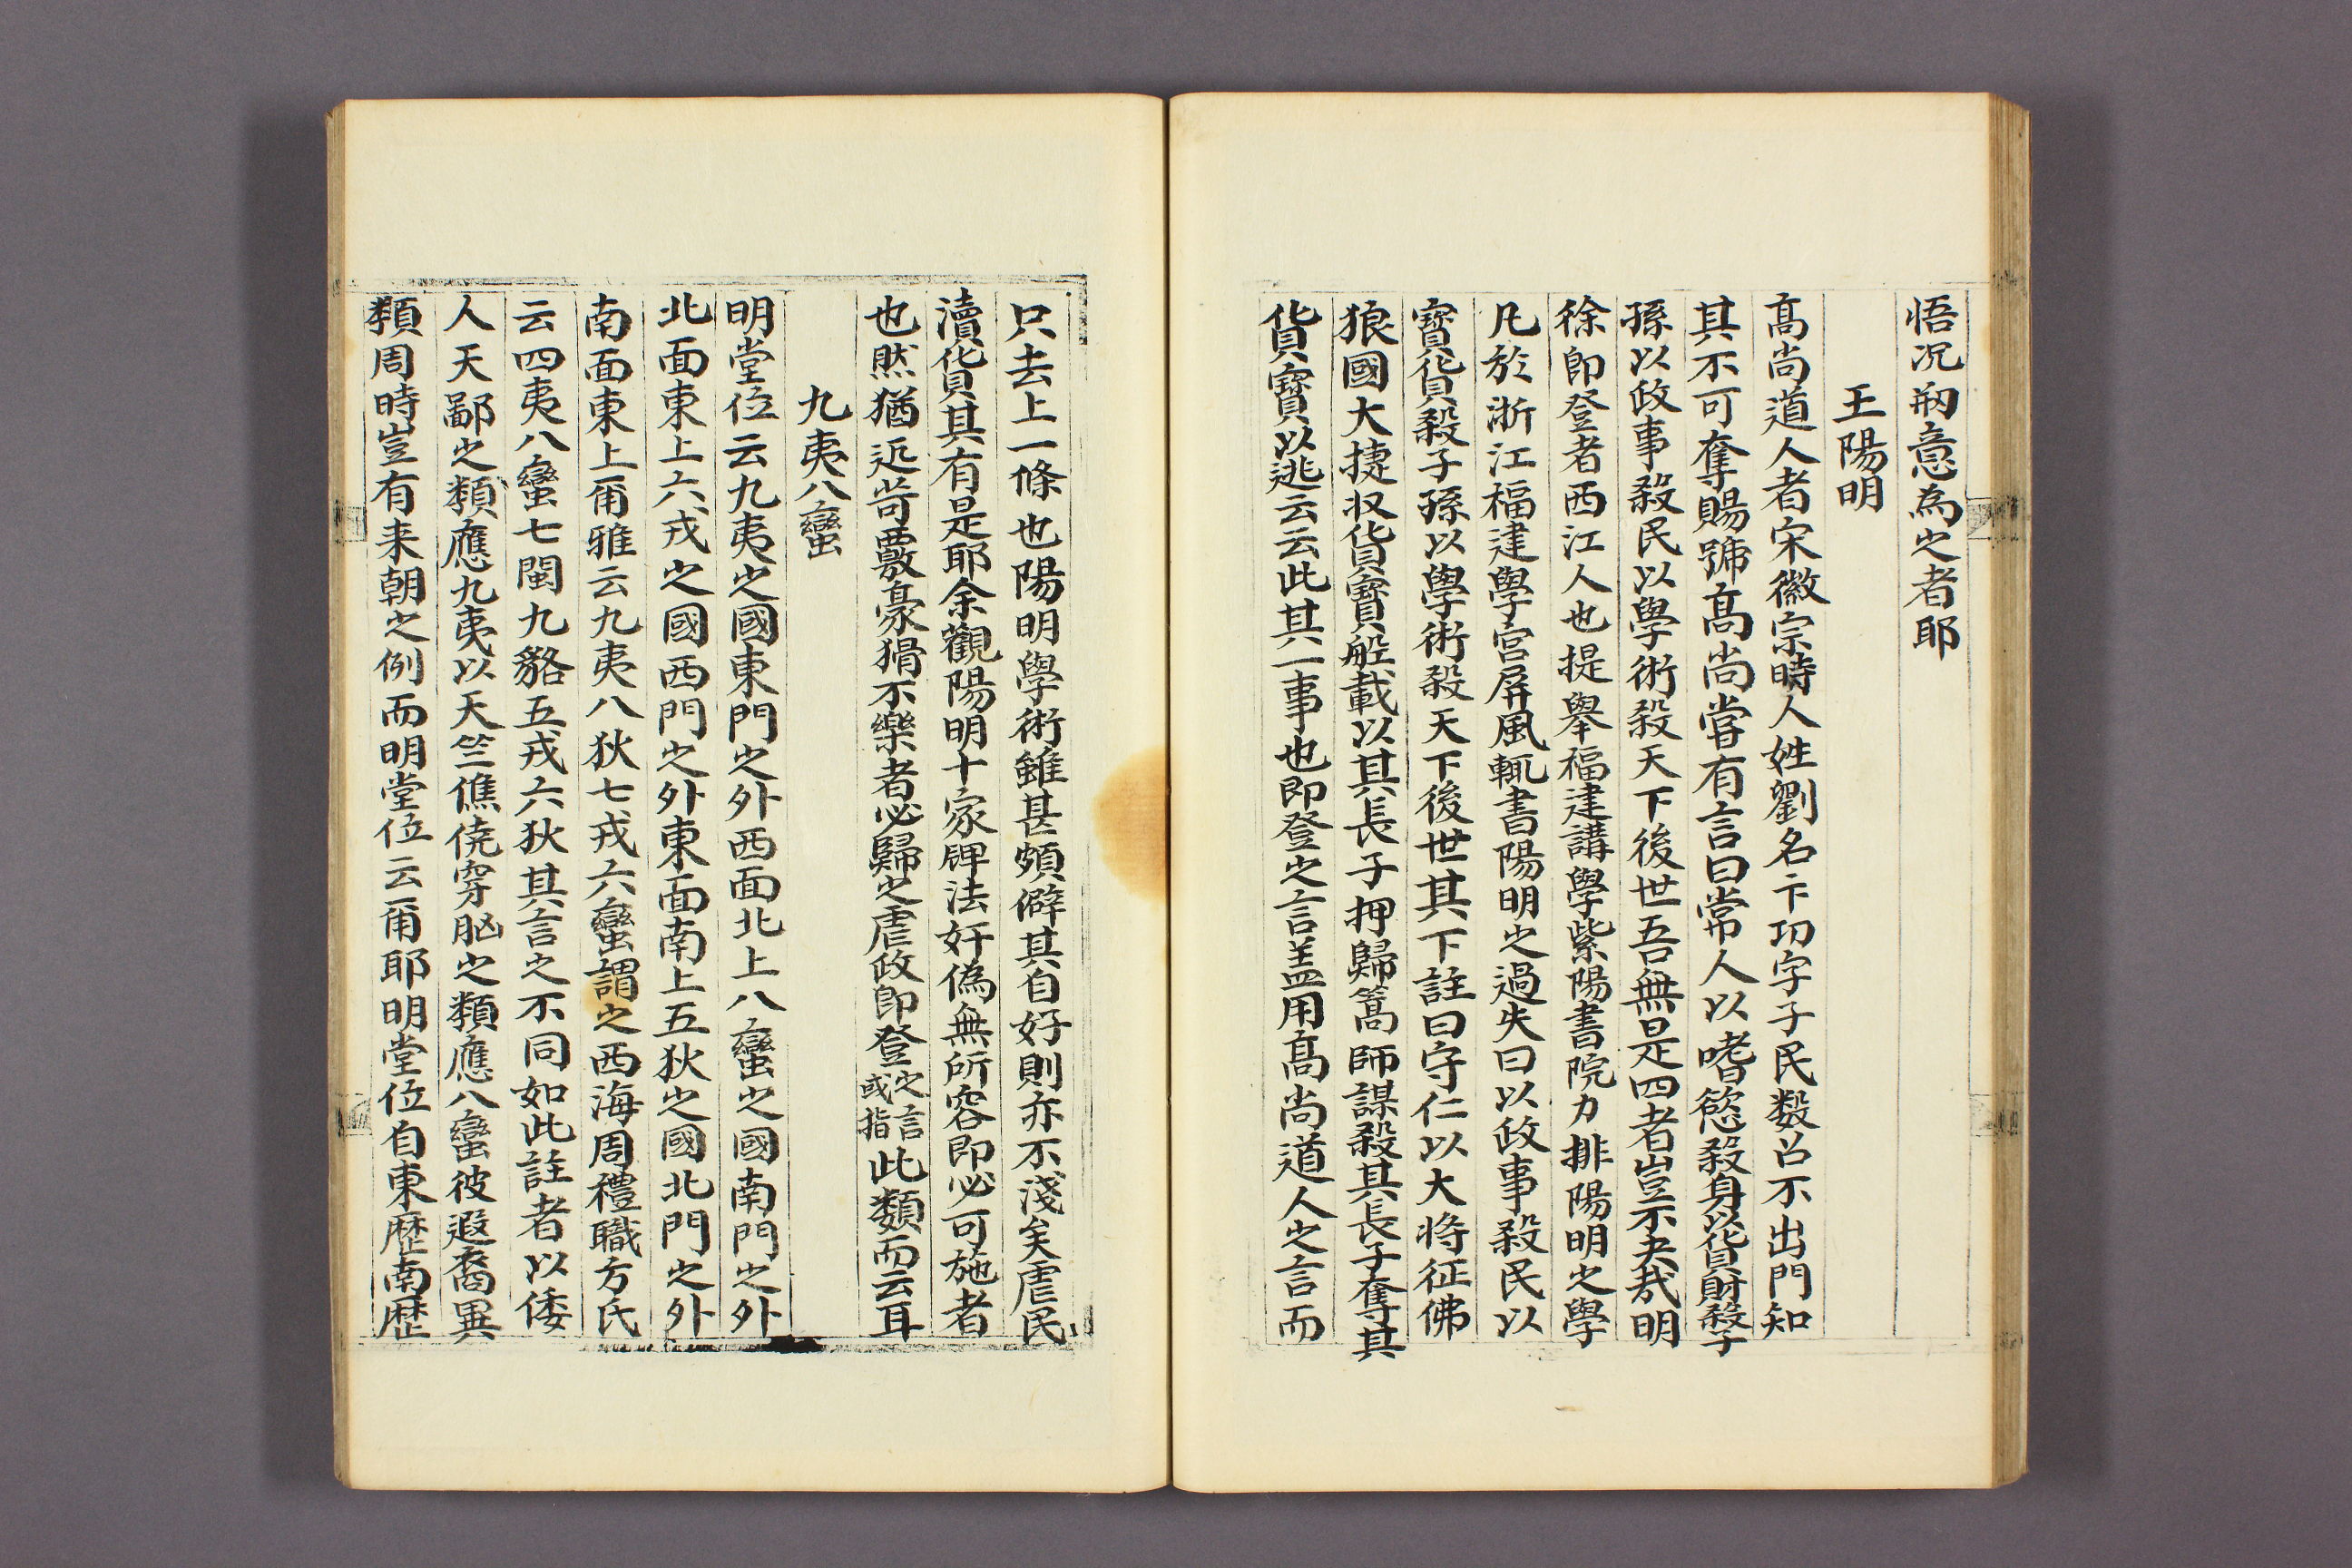 悟况剏意為之者耶
王陽明
髙尚道人者宋徽宗時人姓劉名卞功字子民数召不出門知
其不可奪賜號髙尚甞有言曰常人以嗜慾殺身以貨財殺子
孫以政事殺民以學術殺天下後世吾無是四者豈不夬㢤明
徐即登者西江人也提舉福建講學紫陽書院力排陽明之學
凡於浙江福建學宫屏風輒書陽明之過失曰以政事殺民以
寶貨殺子孫以學術殺天下後世其下註曰守仁以大將征佛
狼國大捷収貨寶舩載以其長子押歸篙師謀殺其長子奪其
貨寶以逃云云此其一事也即登之言盖用髙尚道人之言而
只去上一條也陽明學術雖甚頗僻其自好則亦不淺矣虐民
瀆貨其有是耶余觀陽明十家牌法奸偽無所容即必可施者
也然猶近苛覈豪猾不樂者必歸之虐政即登之言或指此類而云耳
九夷八蠻
明堂位云九夷之國東門之外西面北上八蠻之國南門之外
北面東上六戎之國西門之外東面南上五狄之國北門之外
南面東上爾雅云九夷八狄七戎六蠻謂之西海周禮職方氏
云四夷八蠻七閩九貉五戎六狄其言之不同如此註者以倭
人天鄙之類應九夷以天竺僬僥穿胸之類應八蠻彼遐裔異
類周時豈有来朝之例而明堂位云爾耶明堂位自東歴南歴